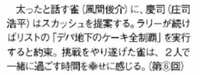 太ったと話す雀(風間俊介)に、慶司(庄司
浩平)はスカッシュを提案する。ラリーが続け
ばリストの「デパ地下のケーキ全制覇」を実行
すると約束。挑戦をやり遂げた雀は、2人で
一緒に過ごす時間を幸せに感じる。(第⑥回)